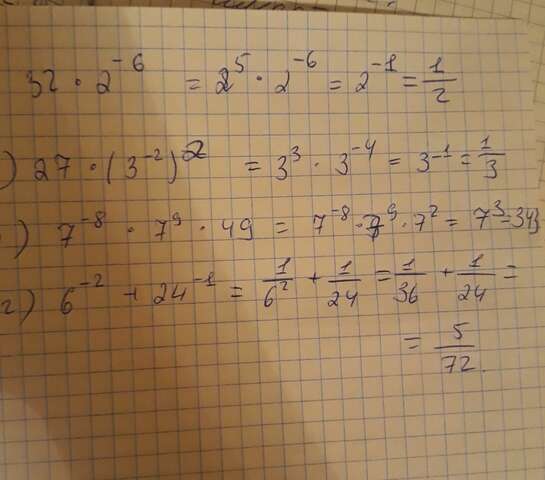 32 · 2⁻⁶ = 2⁵ · 2⁻⁶ = 2⁻¹ = 1/2
) 27 · (3⁻²)² = 3³ · 3⁻⁴ = 3⁻¹ = 1/3
) 7⁻⁸ · 7⁹ · 49 = 7⁻⁸ · 7⁹ · 7² = 7³ = 343
г) 6⁻² + 24⁻¹ = 1/6² + 1/24 = 1/36 + 1/24 =
= 5/72.